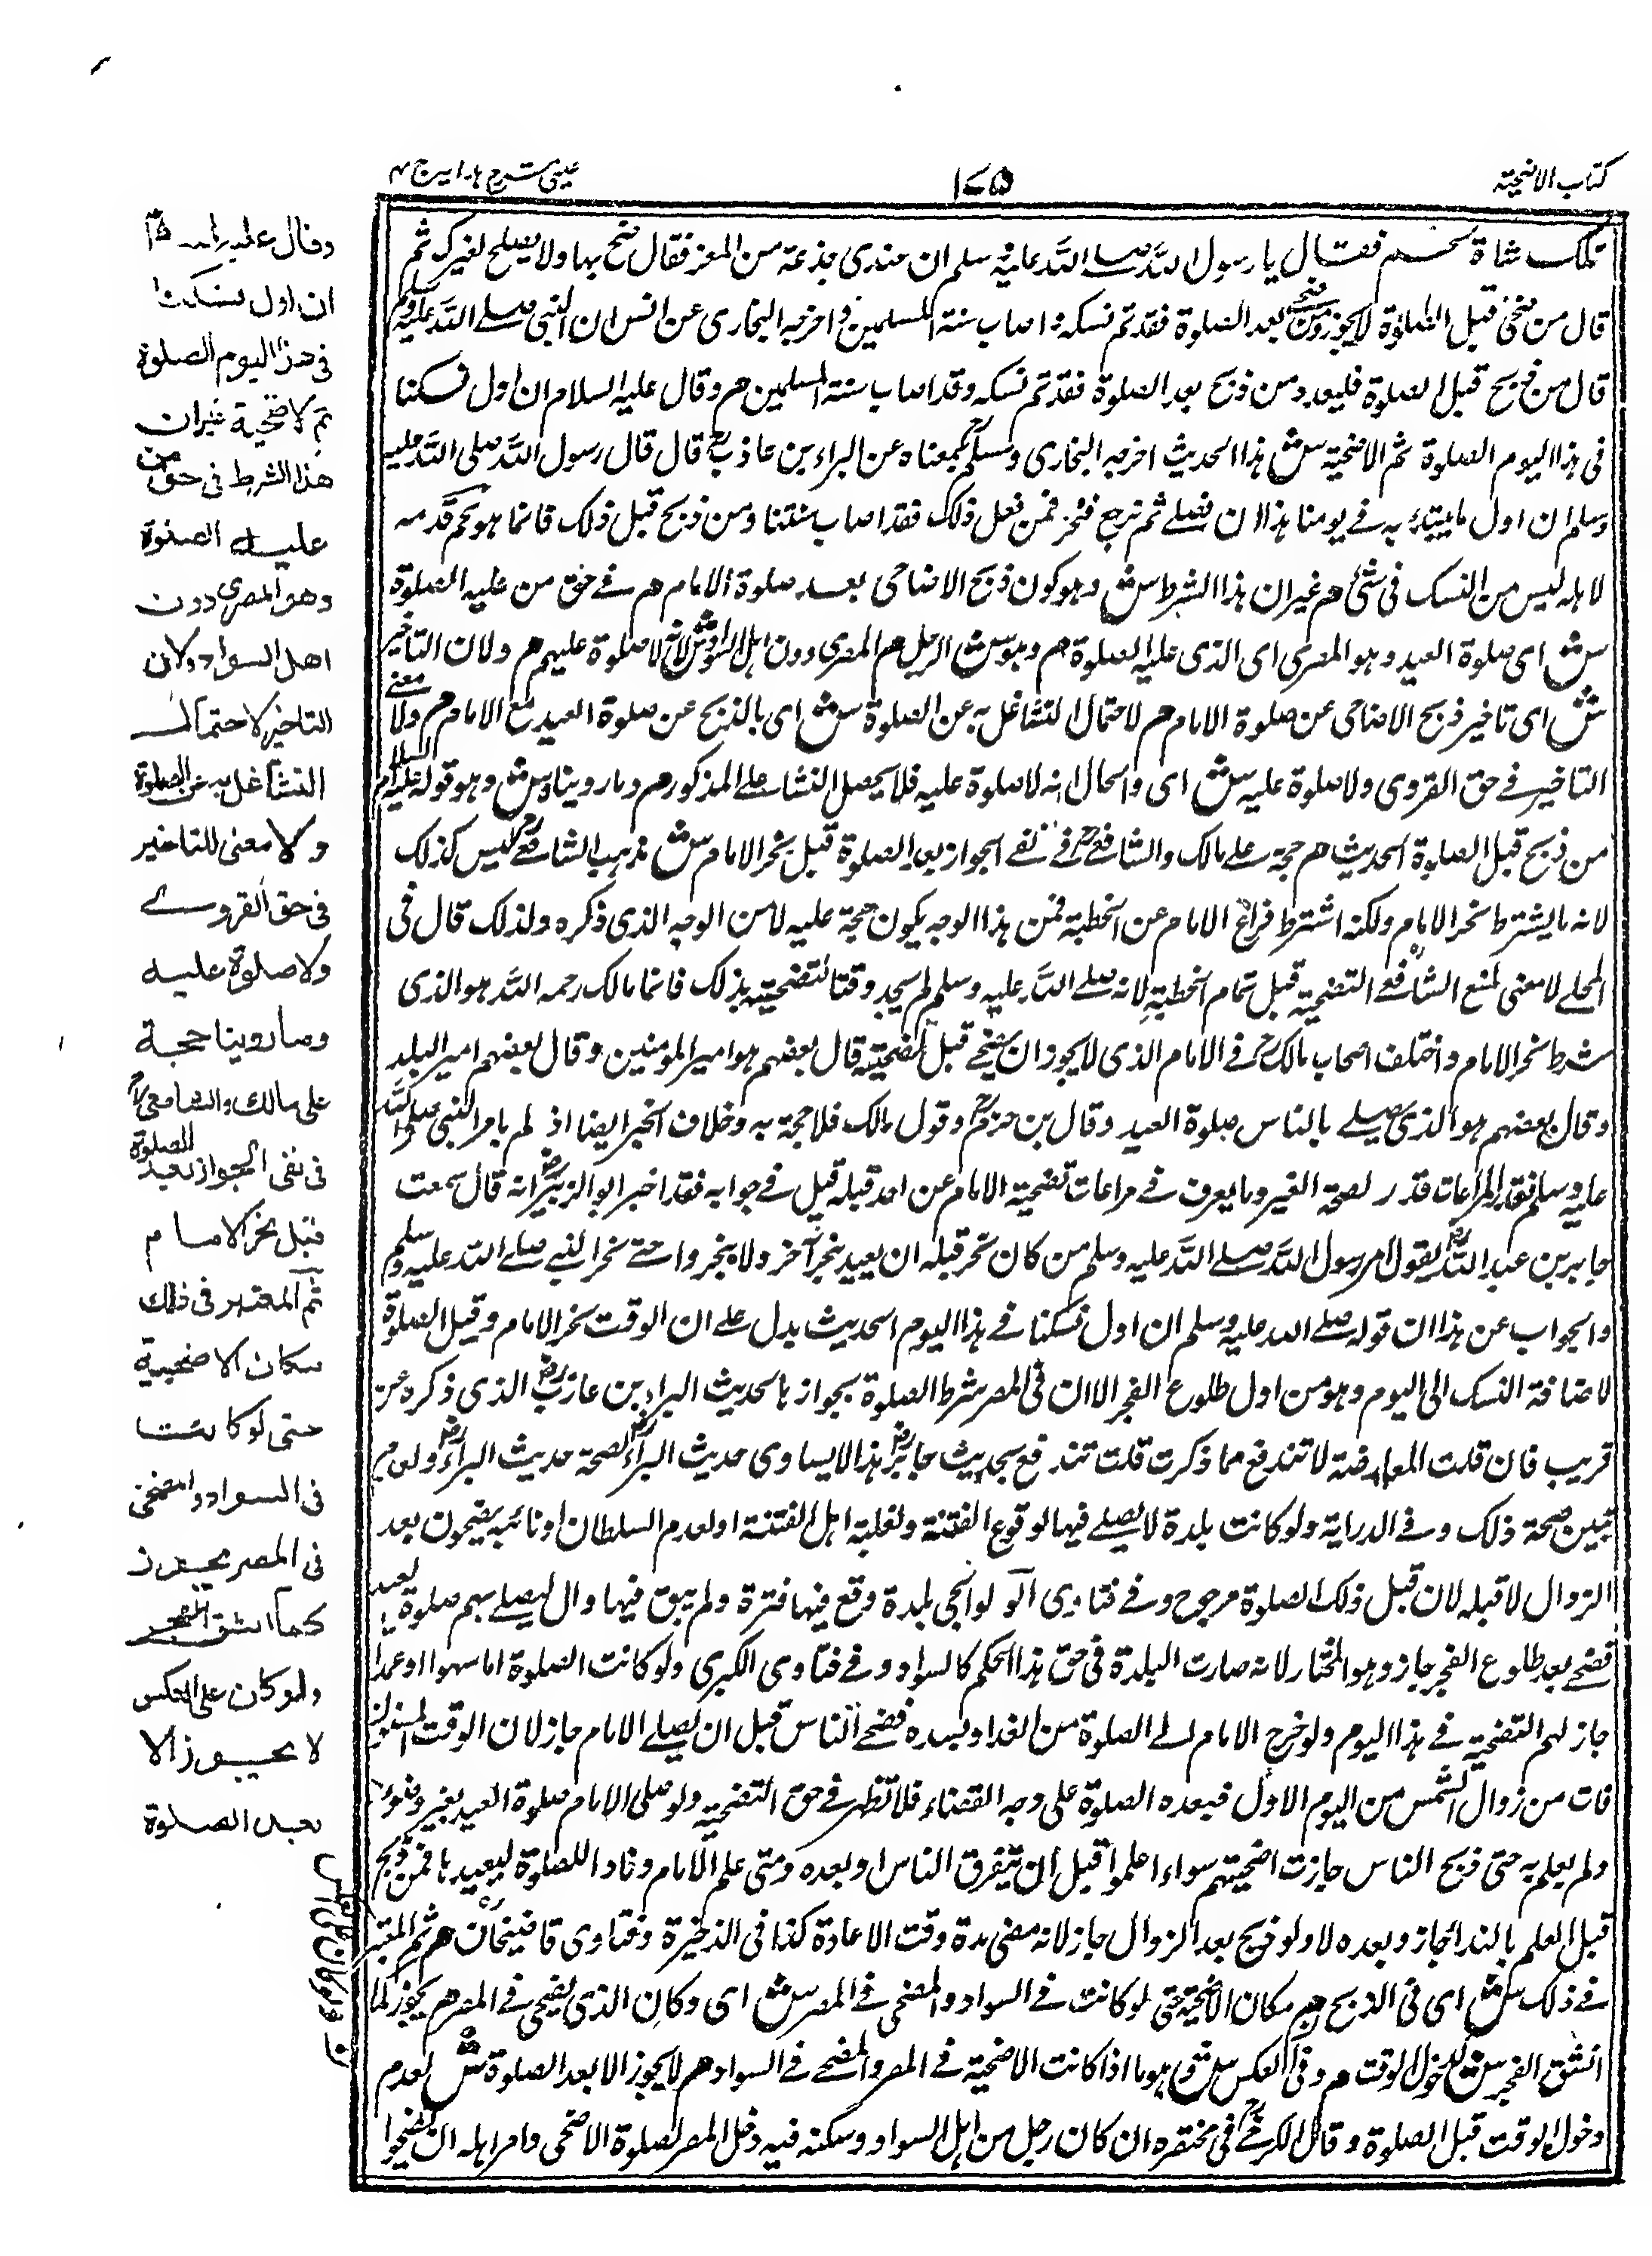 كتاب الاضحية
١٧٥
عينى شرح هداية ج ٤
تلك شاة لحم فقال يا رسول الله صلے الله عليه وسلم ان عندى جذعة من المعز فقال ضح بها ولا يصلح لغيرك ثم
قال من ضحى قبل الصلوة لا يجوز ومن ضحى بعد الصلوة فقد تم نسكه واصاب سنة المسلمين واخرجه البخارى عن انس ان النبى صلے الله عليه وسلم
قال من ذبح قبل الصلوة فليعد ومن ذبح بعد الصلوة فقد تم نسكه وقد اصاب سنة المسلمين م وقال عليه السلام ان اول نسكنا
فى هذا اليوم الصلوة ثم الاضحية ش هذا الحديث اخرجه البخارى ومسلم بمعناه عن البراء بن عاذب قال قال رسول الله صلى الله عليه
وسلم ان اول ما يبتدء به فے يومنا هذا ان نصلے ثم نرجع فننحر فمن فعل ذلك فقد اصاب سنتنا ومن ذبح قبل ذلك فانما هو لحم قدمه
لاهله ليس من النسك فى شئ م غير ان هذا الشرط ش وهو كون ذبح الاضاحى بعد صلوة الامام م فے حق من عليه الصلوة
ش اى صلوة العيد وهو المصرى اى الذى عليه الصلوة م وهو ش الرجل م المصرى دون اهل السواد ش لانه لا صلوة عليهم م ولان التاخير
ش اى تاخير ذبح الاضاحى عن صلوة الامام م لاحتمال التشاغل به عن الصلوة ش اى بالذبح عن صلوة العيد مع الامام م ولا معنى
التاخير فے حق القروى ولا صلوة عليه ش اى والحال انه لا صلوة عليه فلا يحصل التشاغل المذكور م وما روينا ش وهو قوله عليه السلام
من ذبح قبل الصلوة الحديث م حجة علے مالك والشافعے فے نفے الجواز بعد الصلوة قبل نحر الامام ش مذهب الشافعے ليس كذلك
لانه ما يشترط نحر الامام ولكنه اشترط فراغ الامام عن الخطبة فمن هذا الوجه يكون حجة عليه لا من الوجه الذى ذكره ولذلك قال فى
المحلے لا معنى لمنع الشافعے التضحية قبل تمام الخطبة لانه صلے الله عليه وسلم لم يحد وقتا لتضحيته بذلك فانما مالك رحمه الله هو الذى
شرط نحر الامام واختلف اصحاب مالك فے الامام الذى لا يجوز ان يضحے قبل تضحيته قال بعضهم هو امير المومنين وقال بعضهم امير البلد
وقال بعضهم هو الذى يصلے بالناس صلوة العيد وقال بن حزم وقول مالك فلا حجة به وخلاف الخبر ايضا اذ لم يامر النبى صلے الله
عليه وسلم المراعات قدر لصحة الغير وما يعرف فے مراعات تضحية الامام عن احد قبله قيل فے جوابه فقد اخبر ابو الزبير انه قال سمعت
جابر بن عبد الله يقول امر رسول الله صلے الله عليه وسلم من كان نحر قبله ان يعيد نحرا آخر ولا ينحروا حتے نحر النبے صلے الله عليه وسلم
والجواب عن هذا ان قوله صلے الله عليه وسلم ان اول نسكنا فے هذا اليوم الحديث يدل علے ان الوقت نحر الامام وقبل الصلوة
لاضافة النسك الى اليوم وهو من اول طلوع الفجر الا ان فى المصر شرط الصلوة بجوازها لحديث البراء بن عازب الذى ذكره عن
قريب فان قلت المعارضة لا تندفع مما ذكرت قلت تندفع بحديث جابر هذا لا يساوى حديث البراء لصحة حديث البراء ولم
تبين صحة ذلك وفے الدراية ولو كانت بلدة لا يصلے فيها لوقوع الفتنة ولغلبة اهل الفتنة او لعدم السلطان او نائبه يضحون بعد
الزوال لا قبله لان قبل ذلك الصلوة مرجوح وفے فتاوى الولوالجى بلدة وقع فيها فترة ولم يبق فيها وال ليصلے بهم صلوة العيد
فضحے بعد طلوع الفجر جاز وهو المختار لانه صارت البلدة فى حق هذا الحكم كالسواد وفے فتاوى الكبرى ولو كانت الصلوة اما سهوا او عمدا
جاز لهم التضحية فے هذا اليوم ولو خرج الامام الے الصلوة من الغد او بعده فضحے الناس قبل ان يصلے الامام جاز لان الوقت المسنون
فات من زوال الشمس من اليوم الاول فبعده الصلوة على وجه القضاء فلا تظهر فے حق التضحية ولو صلى الامام صلوة العيد بغير وضوء
ولم يعلم به حتى ذبح الناس جازت اضحيتهم سواء اعلموا قبل ان يتفرق الناس او بعده ومتى علم الامام ونادا للصلوة ليعيدها فمن ذبح
قبل العلم بالندا جاز وبعده لا ولو ذبح بعد الزوال جاز لانه مضى مدة وقت الاعادة كذا فى الذخيرة وفتاوى قاضيخان م ثم المعتبر
فے ذلك ش اى فى الذبح م مكان الاضحية حتى لو كانت فے السواد والمضحى فے المصر ش اى وكان الذى يضحى فے المصر م يجوز كما
انشق الفجر ش لدخول الوقت م وفى العكس ش وهو ما اذا كانت الاضحية فے المصر والمضحے فے السواد م لا يجوز الا بعد الصلوة ش لعدم
دخول الوقت قبل الصلوة وقال الكرخے فى مختصره ان كان رجل من اهل السواد ومسكنه فيه دخل المصر لصلوة الاضحى وامر اهله ان يضحوا
وقال عليه السلام
ان اول نسكنا
فى هذا اليوم الصلوة
ثم الاضحية غير ان
هذا الشرط فى حق من
عليه الصلوة
وهو المصرى دون
اهل السواد ولان
التاخير لاحتمال
التشاغل به عن الصلوة
ولا معنى للتاخير
فى حق القروے
ولا صلوة عليه
وما روينا حجة
على مالك والشافعى
فى نفى الجواز بعد الصلوة
قبل نحر الامام
ثم المعتبر فى ذلك
مكان الاضحية
حتى لو كانت
فى السواد والمضحى
فى المصر يجوز
كما انشق الفجر
ولو كان على العكس
لا يجوز الا
بعد الصلوة